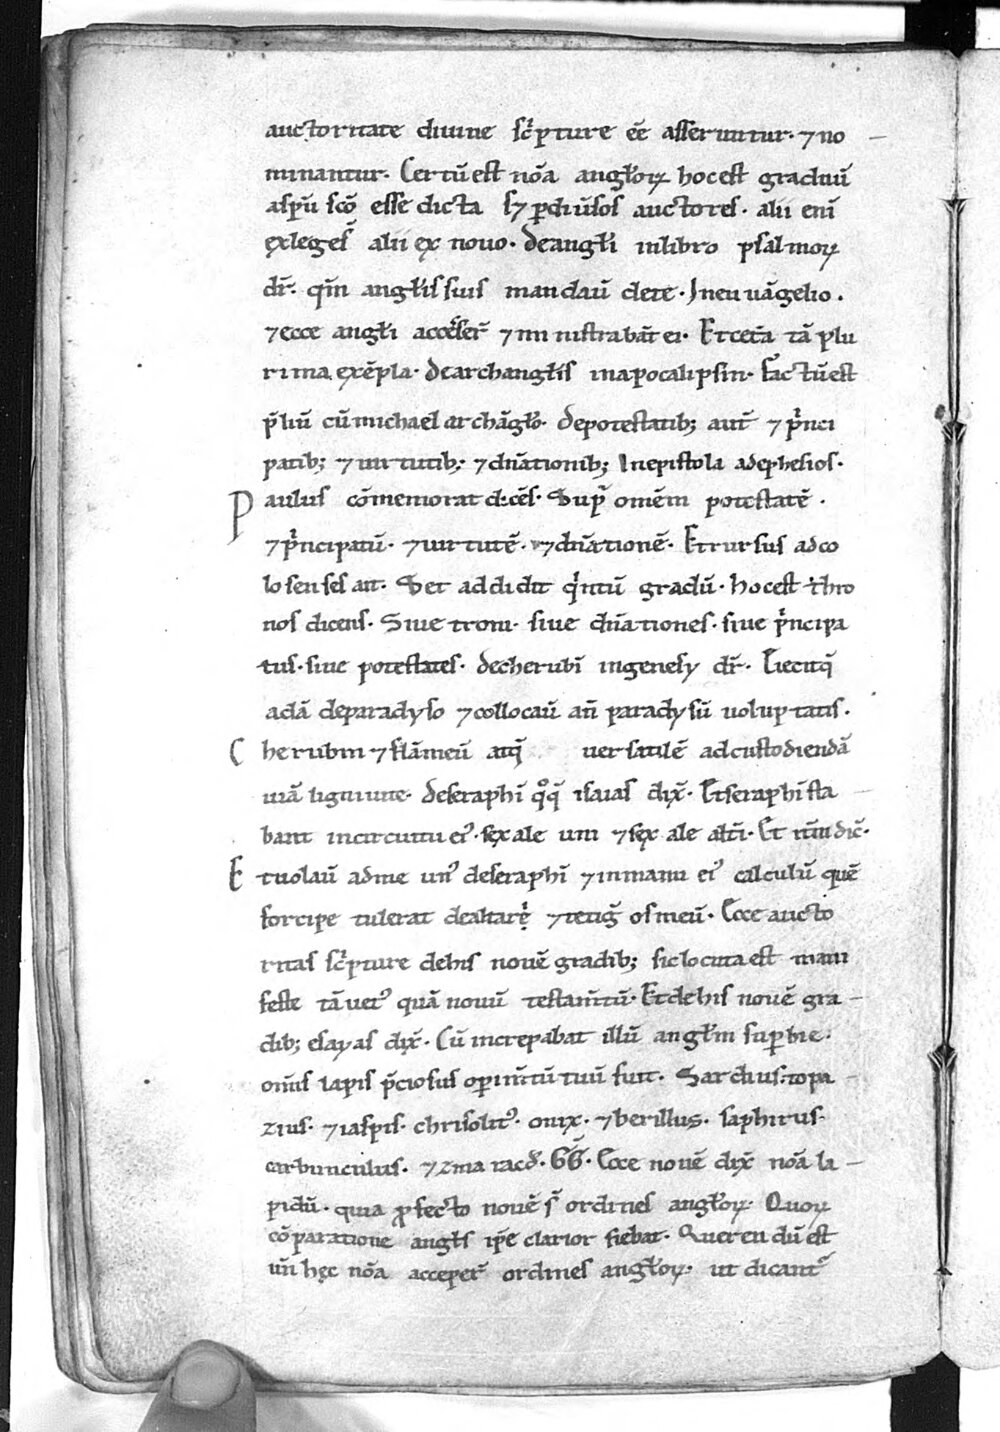 auctoritate diuine sc̾pture eē asseruntur· ⁊ no
minantur· Certū est noa̅ angl̾oꝝ hoc est graduū
a sp̅u sc̅o esse dicta s; ꝑ diu̾sos auctores· alii eni̅
ex leges̾ alii ex nouo· de angl̾i in libro psalmoꝝ
dr̅· qm̅ angl̾is suis mandau̅ de te· In eua̅gelio·
⁊ ecce angl̾i acces̾ser̅ ⁊ mi nistraba̅t ei· Et cet̾a ta̅ plu
rima exe̅pla· de archangl̾is in apocalipsin· Factu̅ est
p̅liu̅ cu̅ michael archa̅gl̾o· de potestatib; aut̅ ⁊ p̾nci
patib; ⁊ uirtutib; ⁊ dn̅ationib; In epistola ad ephesios·
Paulus co̅memorat dice̅s· Sup̾ ome̅m potestate̅·
⁊ p̾ncipatu̅· ⁊ uirtute̅· ⁊ dn̅atione̅· Et rursus ad co
losenses ait· Set addidit q̾ntu̅ gradu̅· hoc est thro
nos dicens· Siue troni· siue dn̅ationes· siue p̾ncipa
tus· siue potestates· de cherubi̅ in genesy dr̅· Eiecitq̅
ada̅ de paradyso ⁊ collocau̅ an̅ paradysu̅ uoluptatis·
Cherubin ⁊ fla̅meu̅ atq̅ uersatile̅ ad custodienda̅
uia̅ ligni uite· de seraphi̅ qo̅q̅ isaias dix̅· Et seraphi̅ sta
bant in circuitu ei᾽· sex ale uni ⁊ sex ale alt̅i· Et it̅m dic̅·
Et uolau̅ ad me un᾽ de seraphi̅ ⁊ in manu ei᾽ calculu̅ que̅
forcipe tulerat de altare̾ ⁊ tetig̅ os meu̅· Ecce aucto
ritas sc̾pture de his noue̅ gradib; sic locuta est mani
feste ta̅ uet᾽ qua̅ nouu̅ testam̅tu̅· Et de his noue̅ gra
dib; esayas dix̅· Cu̅ increpabat illu̅ angl̾m superbie·
omi̅s lapis p̅ciosus oꝑim̅tu̅ tuu̅ fuit· Sardius· topa
zius· ⁊ iaspis· chrisolit᾽· onix· ⁊ berillus· saphirus·
carbunculus· ⁊ zmaracd̅· Ecce noue̅ dix̅ noa̅ la
pidu̅· quia ꝓfecto noue̅ s̅ ordines angl̾oꝝ· Quoꝝ
co̅paratione angl̾s ip̅e clarior fiebat· Querendu̅ est
un̅ hęc noa̅ acceper̅ ordines angl̾oꝝ· ut dicant᾽